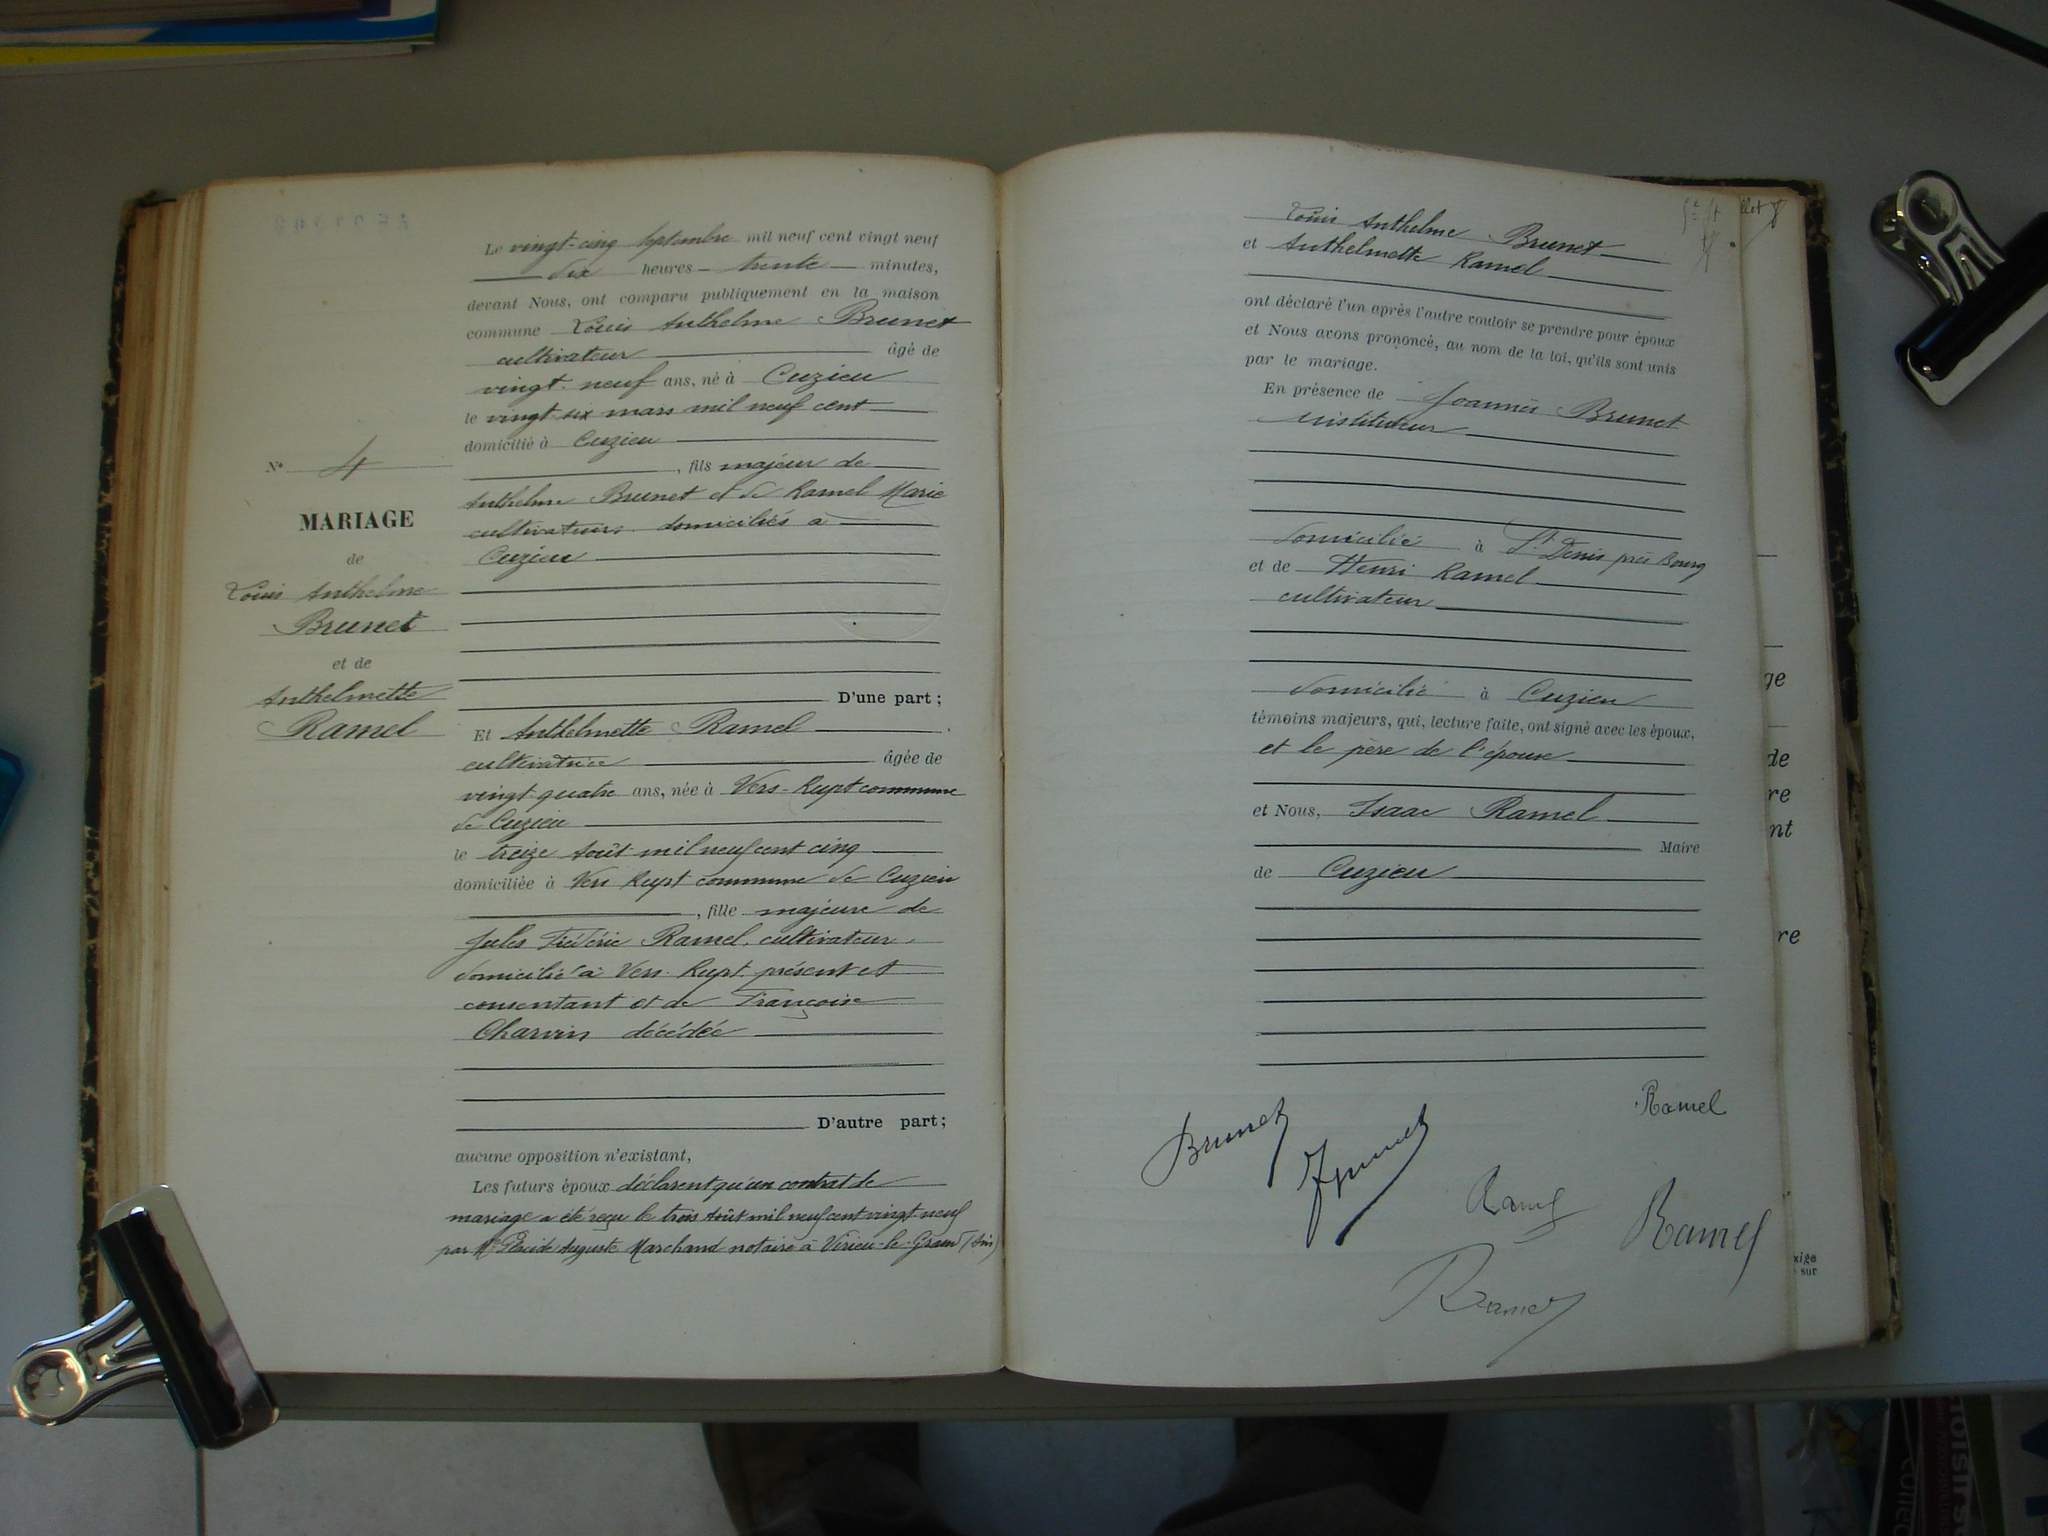 Le vingt-cinq Septembre mil neuf cent vingt neuf
dix heures trente minutes,
devant Nous, ont comparu publiquement en la maison
commune Louis Anthelme Brunet
cultivateur âgé de
vingt-neuf ans, né à Cuzieu
le vingt six mars mil neuf cent
domicilié à Cuzieu
, fils majeur de
Anthelme Brunet et de Ramel Marie
cultivateurs domiciliés à
Cuzieu
D'une part ;
Et Anthelmette Ramel
cultivatrice âgée de
vingt quatre ans, née à Vers-Rupt commune
de Cuzieu
le treize Août mil neuf cent cinq
domiciliée à Vers Rupt commune de Cuzieu
, fille majeure de
Jules Frédéric Ramel, cultivateur,
domicilié à Vers-Rupt, présent et
consentant et de Françoise
Charvin décédée
D'autre part ;
aucune opposition n'existant,
Les futurs époux déclarent qu'un contrat de
mariage a été reçu le trois Août mil neuf cent vingt neuf
par Me Placide Auguste Marchand notaire à Virieu-le-Grand (Ain)
N° 4
MARIAGE
de
Louis Anthelme
Brunet
et de
Anthelmette
Ramel
Louis Anthelme Brunet
et Anthelmette Ramel
ont déclaré l'un après l'autre vouloir se prendre pour époux
et Nous avons prononcé, au nom de la loi, qu'ils sont unis
par le mariage.
En présence de Joannès Brunet
instituteur
domicilié à St Denis près Bourg
et de Henri Ramel
cultivateur
domicilié à Cuzieu
témoins majeurs, qui, lecture faite, ont signé avec les époux,
et le père de l'épouse
et Nous, Isaac Ramel
Maire
de Cuzieu
Ramel
Brunet
Ramel
Ramel
Ramel
ge
de
re
nt
re
xige
sur